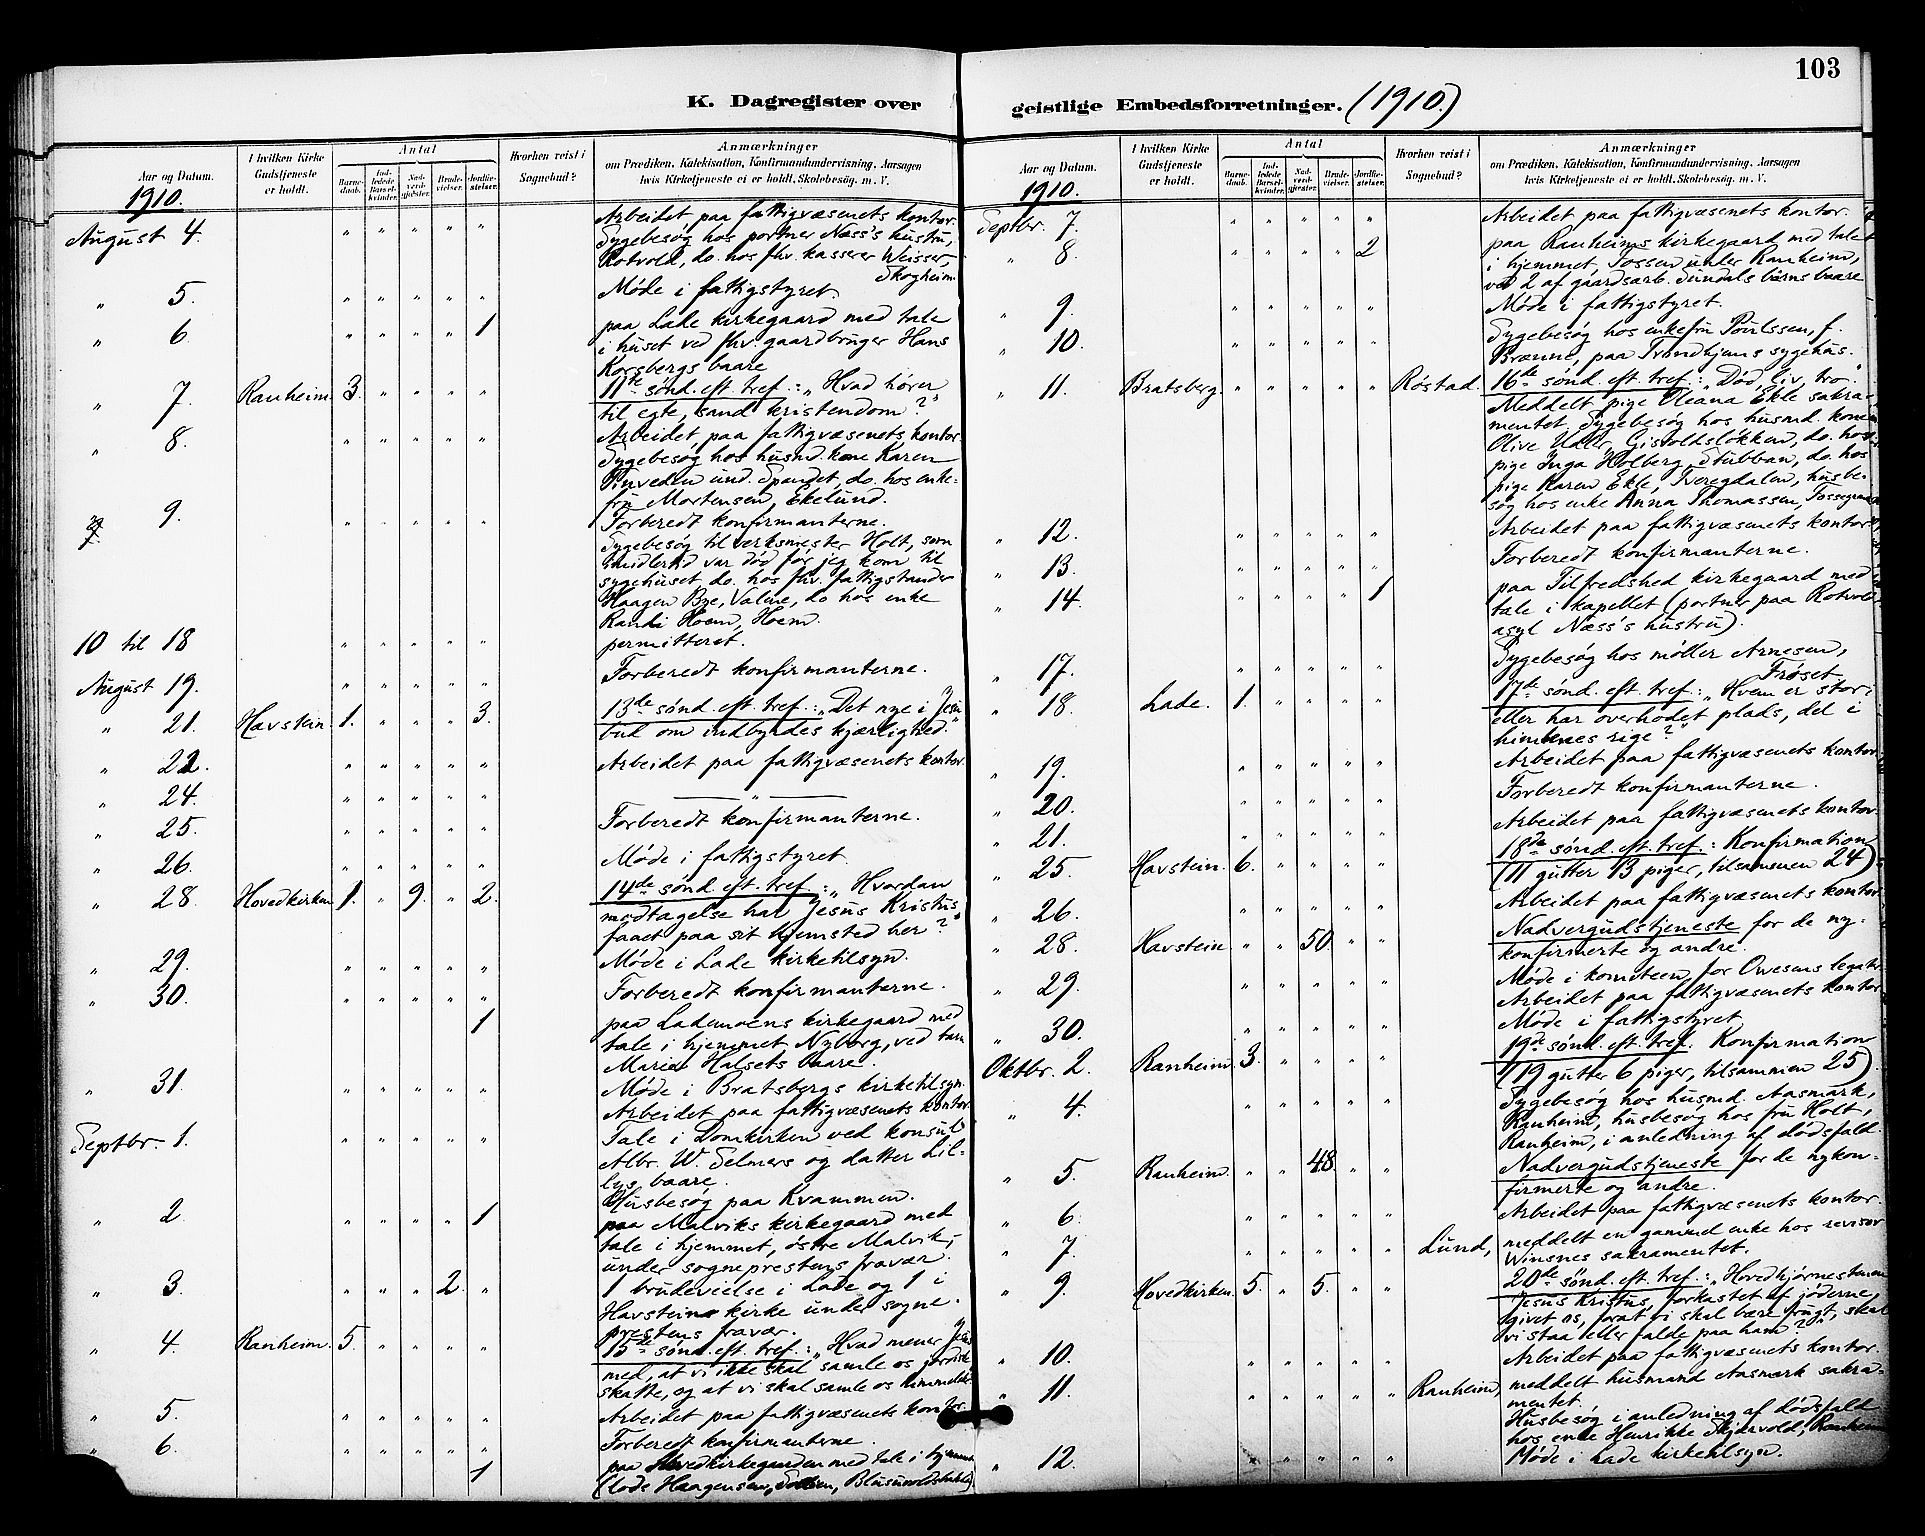 103
K. Dagregister over
geistlige Embedsforretninger. (1910.)
Aar og Datum.
I hvilken Kirke Gudstjeneste er holdt.
Antal
Barnedaab.
Indledede Barselkvinder.
Nadverdgjæster.
Brudevielser.
Jordfæstelser.
Hvorhen reist i Sognebud?
Anmærkninger
om Prædiken, Katekisation, Konfirmandundervisning, Aarsagen
hvis Kirketjeneste ei er holdt, Skolebesøg. m. V.
1910.
August 4. Arbeidet paa fattigvæsenets kontor.
Sygebesøg hos portner Næss's hustru,
Rotvold, do. hos fhv. kasserer Weisser,
Skogheim.
" 5. Møde i fattigstyret.
" 6. 1 paa Lade kirkegaard med tale
i huset ved fhv. gaardbruger Hans
Korsbergs baare
" 7. Ranheim. 3. 11te sønd. eft. tref.: "Hvad hører
til egte, sand kristendom?"
" 8. Arbeidet paa fattigvæsenets kontor.
Sygebesøg hos husmd. kone Karen
und. Spandet, do. hos enke-
fru Mortensen, Ekelund.
" 9. Forberedt konfirmanterne.
Sygebesøg til verksmester Holt, som
imidlertid var død før jeg kom til
sygehuset, do. hos fhv. fattigforstander
Haagen Bye, Valene, do. hos enke
Randi Hoem, Hoem.
10 til 18 permitteret.
August 19. Forberedt konfirmanterne.
" 21. Havstein. 1. 3. 13de sønd. eft. tref.: "Det nye i Jesu
bud om indbyrdes kjærlighed."
" 22. Arbeidet paa fattigvæsenets kontor.
" 24. "
" 25. Forberedt konfirmanterne.
" 26. Møde i fattigstyret.
" 28. Hovedkirken 1. 9. 2. 14de sønd. eft. tref.: "Hvordan
modtagelse har Jesus Kristus
faaet paa sit hjemsted her?"
" 29. Møde i Lade kirketilsyn.
" 30. Forberedt konfirmanterne.
1 paa Lademoens kirkegaard med
tale i hjemmet Nyborg, ved
Marie Halsets baare.
" 31. Møde i Bratsbergs kirketilsyn.
Arbeidet paa fattigvæsenets kontor.
Septbr. 1. Tale i Domkirken ved konsul
Albr. W. Selmers og datter Lil-
lys baare.
Husbesøg paa Kvammen.
" 2. 1 paa Malviks kirkegaard med
tale i hjemmet, østre Malvik,
under sogneprestens fravær.
" 3. 2. 1 brudevielse i Lade og 1 i
Havsteins kirke under sogne-
prestens fravær.
" 4. Ranheim. 5. 15de sønd. eft. tref.: "Hvad mener Jesus
med, at vi ikke skal samle os jordiske
skatte, og at vi skal samle os himmelske"
" 5. Arbeidet paa fattigvæsenets kontor.
" 6. Forberedt konfirmanterne.
1 paa Hovedkirkegaarden med tale i hjemmet
(Lode Haagensen,
1910.
Septbr. 7. Arbeidet paa fattigvæsenets kontor.
" 8. 2 paa Ranheims kirkegaard med tale
i hjemmet, Tossen under Ranheim,
ved 2 af gaardsarb. Sundals børns baare
" 9. Møde i fattigstyret.
" 10. Sygebesøg hos enkefru Poulssen, f.
Brænne, paa Trondhjems sygehus.
" 11. Bratsberg. Røstad. 16te sønd. eft. tref.: "Død, liv, tro."
Meddelt pige Oleana Ekle sakra-
mentet, Sygebesøg hos husmd. kone
Olive Udler, Gisvoldsløkken, do. hos
pige Inga Holberg, Stubban, do. hos
pige Karen Ekle, Tveregdalen, husbe-
søg hos enke Anna Thomassen,
" 12. Arbeidet paa fattigvæsenets kontor
" 13. Forberedt konfirmanterne.
" 14. 1 paa Tilfredshed kirkegaard med
tale i kapellet (portner paa Rotvold
asyl Næss's hustru).
" 17. Sygebesøg hos møller Arnesen,
Frøset.
" 18. Lade. 1. 17de sønd. eft. tref.: "Hvem er stor,
eller har overhodet plads, del i
himlenes rige?"
" 19. Arbeidet paa fattigvæsenets kontor.
" 20. Forberedt konfirmanterne.
" 21. Arbeidet paa fattigvæsenets kontor.
" 25. Havstein. 6. 18de sønd. eft. tref.: Konfirmation
(11 gutter 13 piger, tilsammen 24)
" 26. Arbeidet paa fattigvæsenets kontor
" 28. Havstein 50. Nadvergudstjeneste for de ny-
konfirmerte og andre.
" 29. Møde i komiteen for Owesens legater
Arbeidet paa fattigvæsenets kontor
" 30. Møde i fattigstyret
Oktbr. 2. Ranheim. 3. 19de sønd. eft. tref. Konfirmation
(19 gutter 6 piger, tilsammen 25).
" 4. Sygebesøg hos husmd. Aasmark,
Ranheim, husbesøg hos fru Holt,
Ranheim, i anledning af dødsfald.
" 5. Ranheim. 48. Nadvergudstjeneste for de nykon-
firmerte og andre.
" 6. Arbeidet paa fattigvæsenets kontor.
" 7. Lund, meddelt en gammel enke hos revisor
Winsnes sakramentet.
" 9. Hovedkirken. 5. 5. 20de sønd. eft. tref.: "Hovedhjørnestenen
Jesus Kristus, forkastet af jøderne,
givet os, forat vi skal bære frugt, skal
vi staa eller falde paa ham?"
" 10. Arbeidet paa fattigvæsenets kontor.
" 11. Ranheim, meddelt husmand Aasmark sakra-
mentet.
Husbesøg i anledning af dødsfald
hos enke Henrikke Skjærvold, Ranheim
" 12. Møde i Lade kirketilsyn.